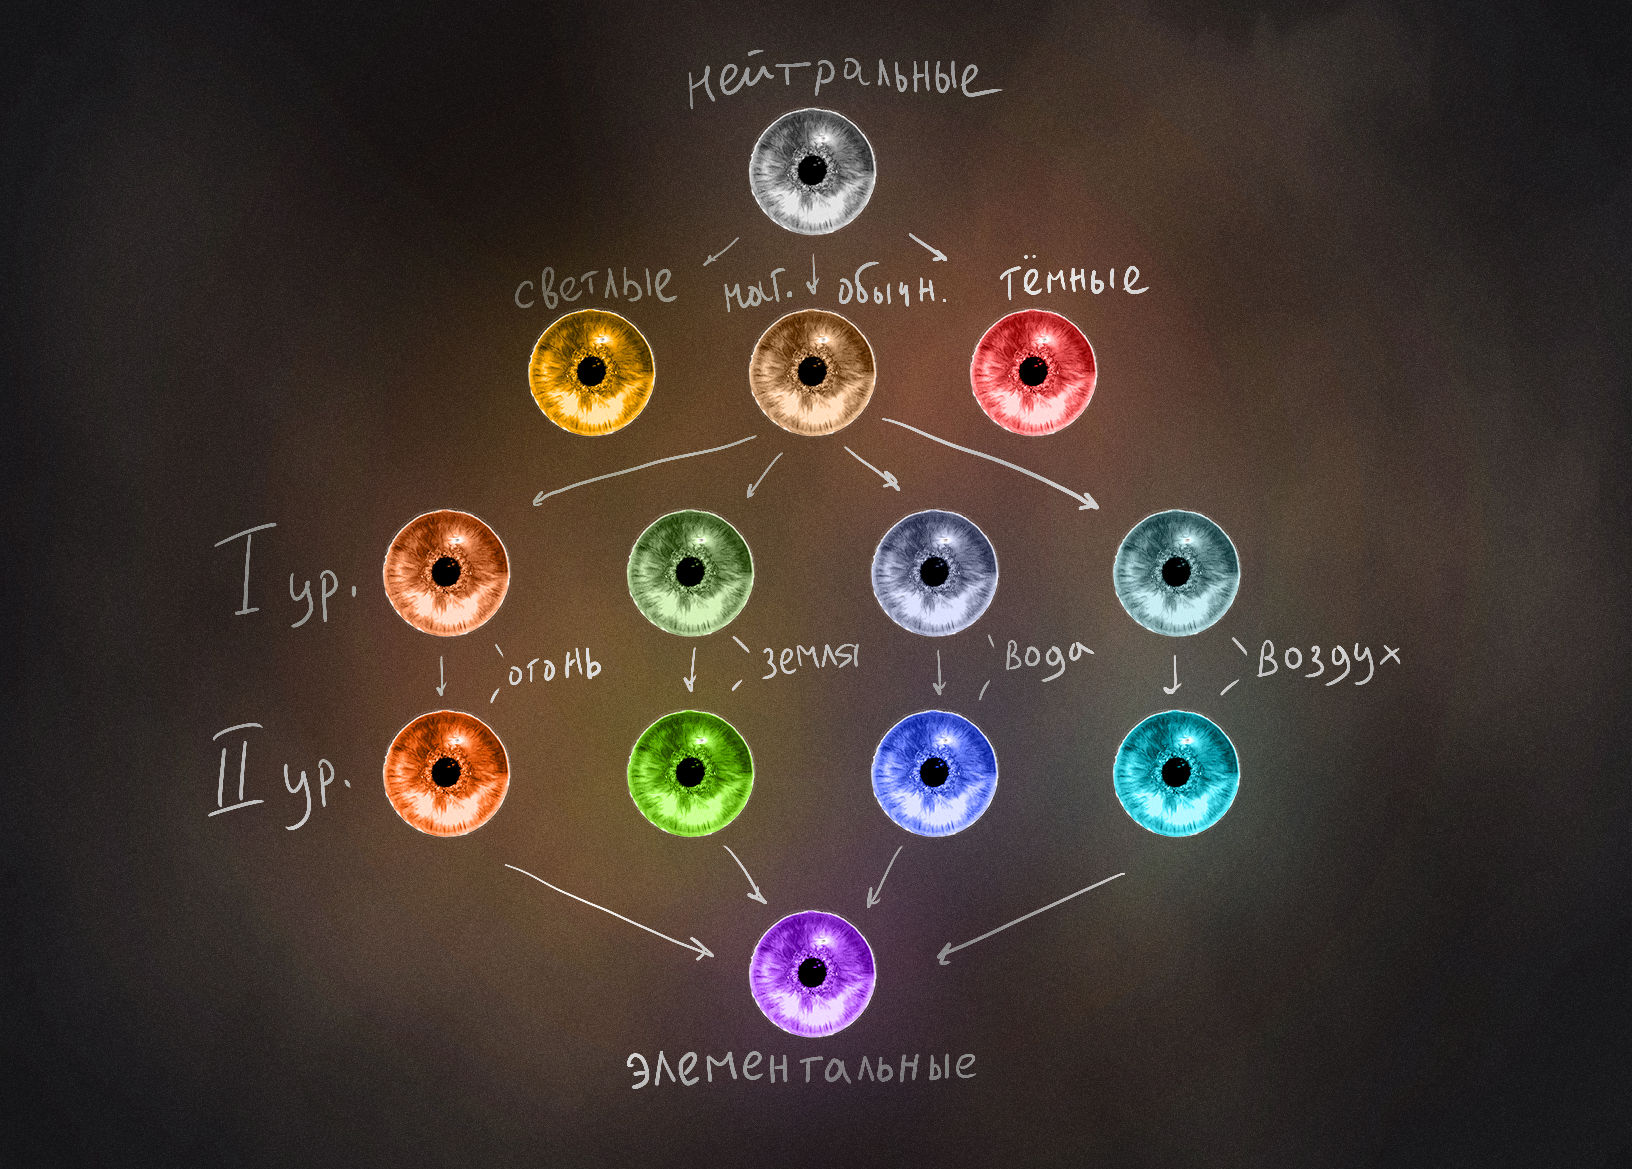 нейтральные
светлые
маг. обычн.
тёмные
I ур.
огонь
земля
вода
воздух
II ур.
элементальные